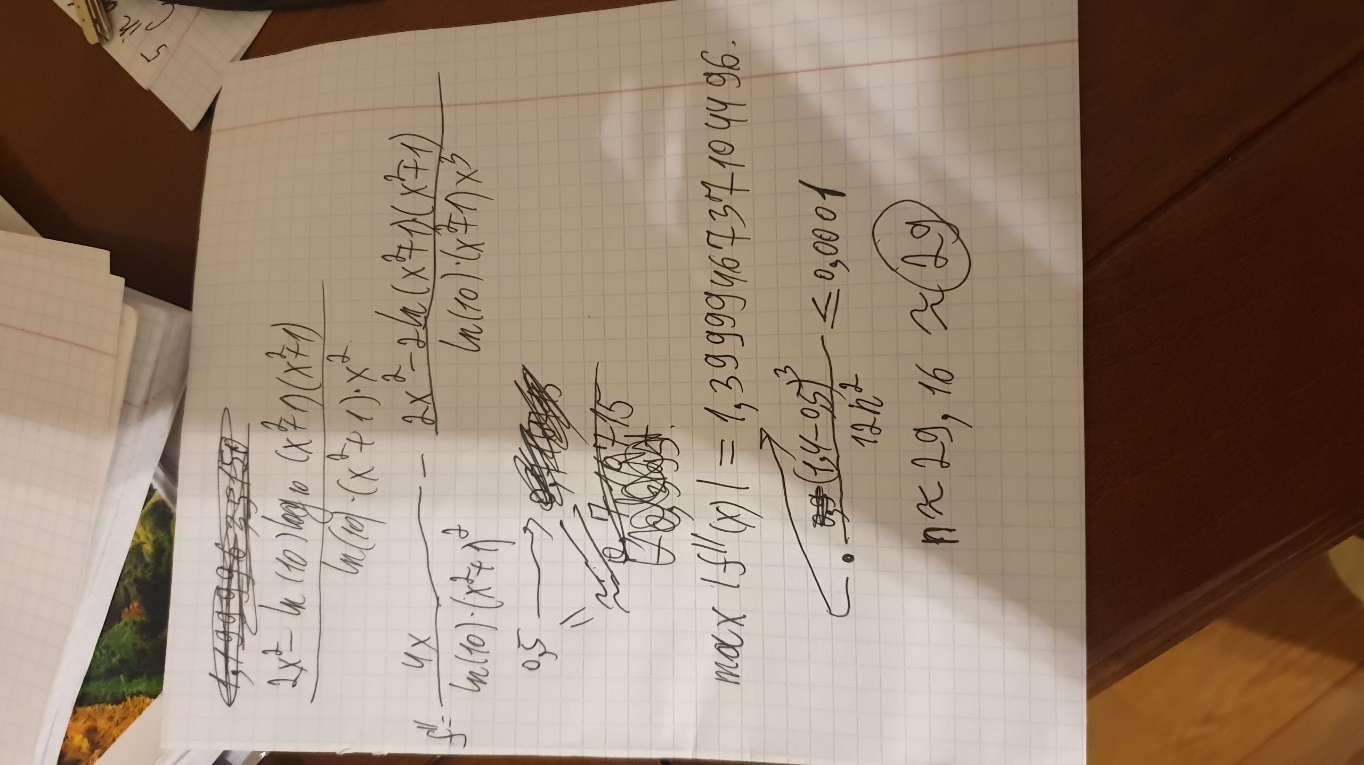 2x² - ln(10)log₁₀(x²+1)(x²+1)
ln(10)·(x²+1)·x²
f'' = 4x / ln(10)·(x²+1)² - 2x² - 2ln(x²+1)·(x²+1) / ln(10)·(x²+1)x³
0,5
max |f''(x)| = 1,3999946737104496.
(1,4-0,5)³ / 12n² ≤ 0,0001
n ≈ 29,16 ≈ 29